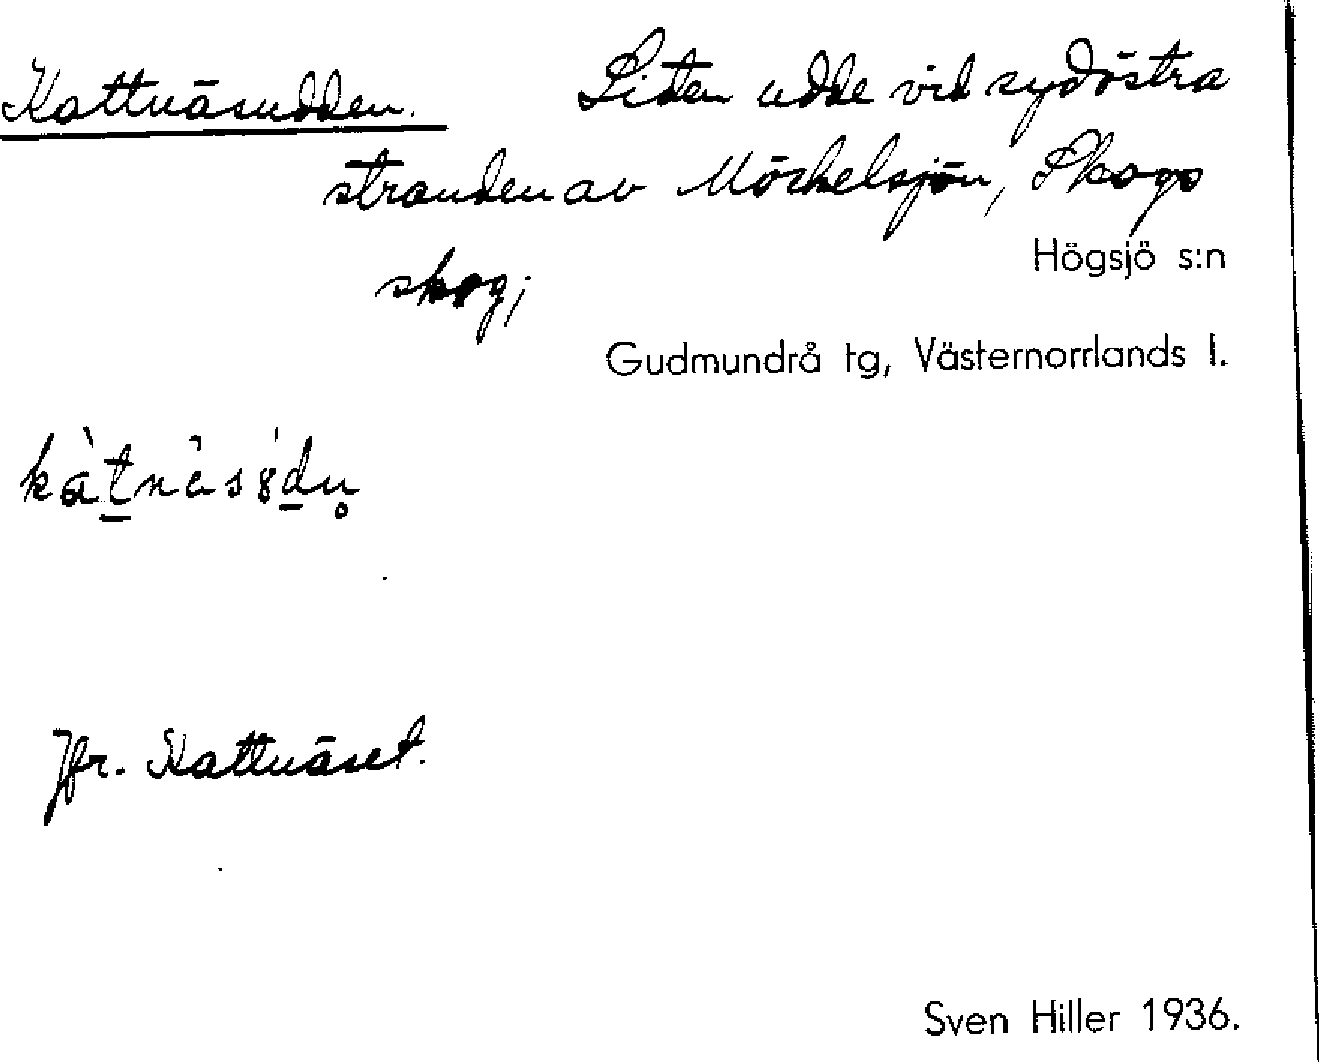 Kattnäsudden. Liten udde vid sydöstra
stranden av Mörkelsjön, Skogs
skog;
Högsjö s:n
Gudmundrå tg, Västernorrlands l.
Jfr. Kattnäset.
Sven Hiller 1936.